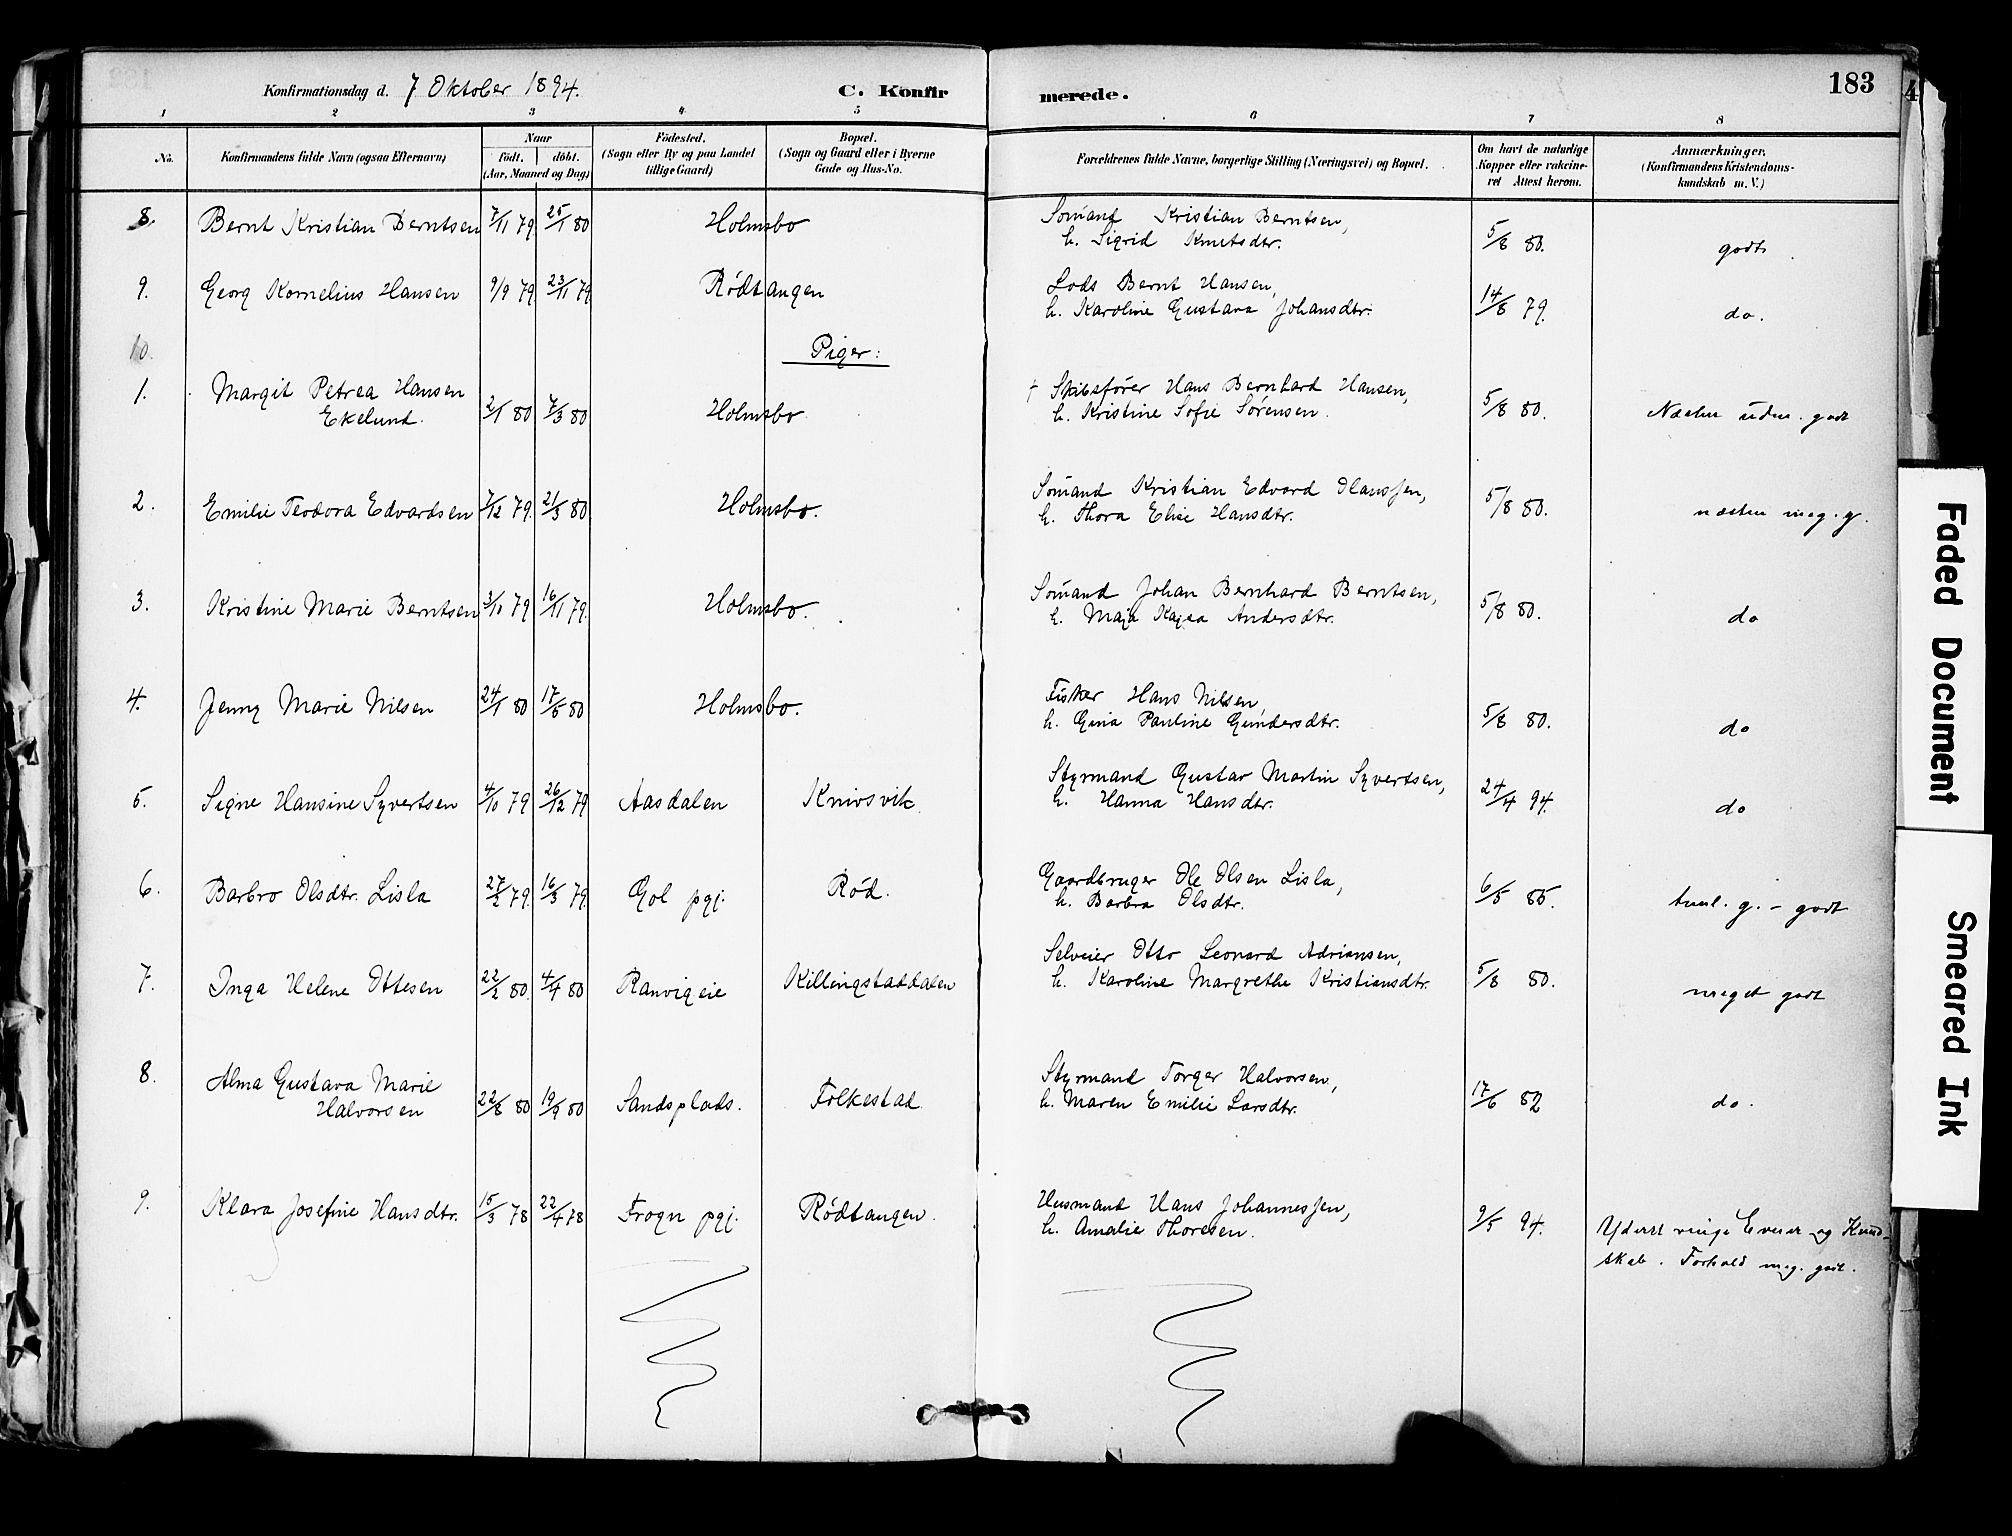 Konfirmationsdag d. 7 Oktober 1894. C. Konfirmerede. 183
1 2 3 4 5 6 7 8
No. Konfirmandens fulde Navn (ogsaa Efternavn) Naar født. døbt. (Aar, Maaned og Dag) Fødested. (Sogn eller By og paa Landet tillige Gaard) Bopæl. (Sogn og Gaard eller i Byerne Gade og Hus-No. Forældrenes fulde Navne, borgerlige Stilling (Næringsvei) og Bopæl. Om havt de naturlige Kopper eller vakcineret Attest herom. Anmærkninger. (Konfirmandens Kristendomskundskab m. V.)
8. Bernt Kristian Berntsen 7/11 79 25/1 80 Holmsbo Sömand Kristian Berntsen, 5/8 80. godt
h. Sigrid Knutsdtr.
9. Georg Kornelius Hansen 9/9 79 23/11 79 Rödtangen Lods Bernt Hansen, 14/8 79. do.
h. Karoline Gustava Johansdtr.
10. Piger:
1. Margit Petrea Hansen † Skibsförer Hans Bernhard Hansen,
Ekelund. 2/1 80 7/3 80 Holmsbo h. Kristine Sofie Sörensen. 5/8 80. Næsten udm. godt
2. Emilie Teodora Edvardsen 7/12 79. 21/3 80 Holmsbo. Sömand Kristian Edvard Olanssen, 5/8 80. næsten meg. g.
h. Thora Elise Hansdtr.
3. Kristine Marie Berntsen 3/10 79 16/11 79. Holmsbo. Sömand Johan Bernhard Berntsen, 5/8 80. do
h. Maja Kajsa Andersdtr.
4. Jenny Marie Nilsen 24/1 80 17/5 80 Holmsbo. Fisker Hans Nilsen, 5/8 80. do
h. Gina Pauline Gundersdtr.
5. Signe Hansine Syvertsen 4/10 79 26/12 79 Aasdalen Knivsvik. Styrmand Gustav Martin Syvertsen, 24/4 94. do
h. Hanna Hansdtr.
6. Barbro Olsdtr. Lisla 27/2 79. 16/3 79. Gol pgj. Röd. Gaardbruger Ole Olsen Lisla, 6/5 85. tml. g. - godt
h. Barbra Olsdtr.
7. Inga Helene Ottesen 22/2 80. 4/4 80 Ranvigeie Killingstaddalen Selveier Otto Leonard Adriansen, 5/8 80. meget godt
h. Karoline Margrethe Kristiansdtr.
8. Alma Gustava Marie Styrmand Torger Halvorsen,
Halvorsen 22/8 80 19/9 80 Sandsplads. Folkestad. h. Maren Emilie Larsdtr. 17/6 82 do.
9. Klara Josefine Hansdtr. 15/3 78 22/4 78 Frogn pgj. Rödtangen. Husmand Hans Johannessen, 9/5 94. Yderst ringe Evner og Kund-
h. Amalie Thoresen. skab. Forhold meg. godt.
Faded Document
Smeared Ink